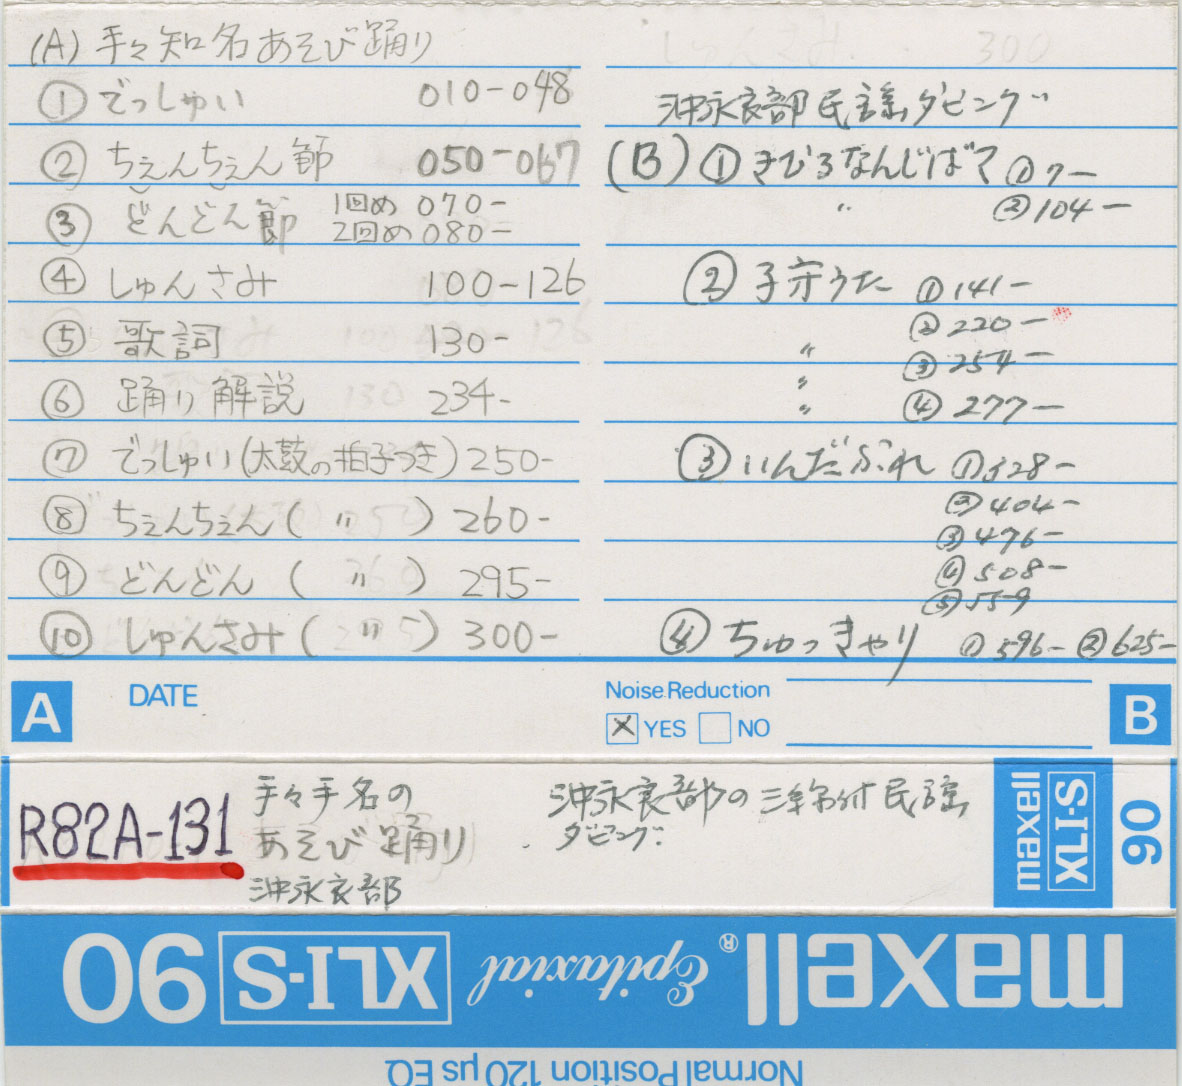 (A) 手々知名あそび踊り
① でっしゅい 010-048
② ちぇんちぇん節 050-067
③ どんどん節 1回め 070-
2回め 080-
④ しゅんさみ 100-126
⑤ 歌詞 130-
⑥ 踊り解説 234-
⑦ でっしゅい(太鼓の拍子つき) 250-
⑧ ちぇんちぇん ( 〃 ) 260-
⑨ どんどん ( 〃 ) 295-
⑩ しゅんさみ ( 〃 ) 300-
しゅんさみ 300
沖永良部民謡ダビング
(B) ① きびるなんじばて ① 7-
〃 ② 104-
② 子守うた ① 141-
② 220-
〃 ③ 254-
〃
〃 ④ 277-
③ いんだぶれ ① 328-
② 404-
③ 476-
④ 508-
⑤ 559
④ ちゅっきゃり ① 596- ② 625-
A DATE
Noise Reduction
☒ YES ☐ NO
B
R82A-131
手々手名の
あそび踊り
沖永良部
沖永良部の 民謡
ダビング
maxell
XLI-S
90
maxell® Epitaxial XLI-S 90
Normal Position 120 μs EQ